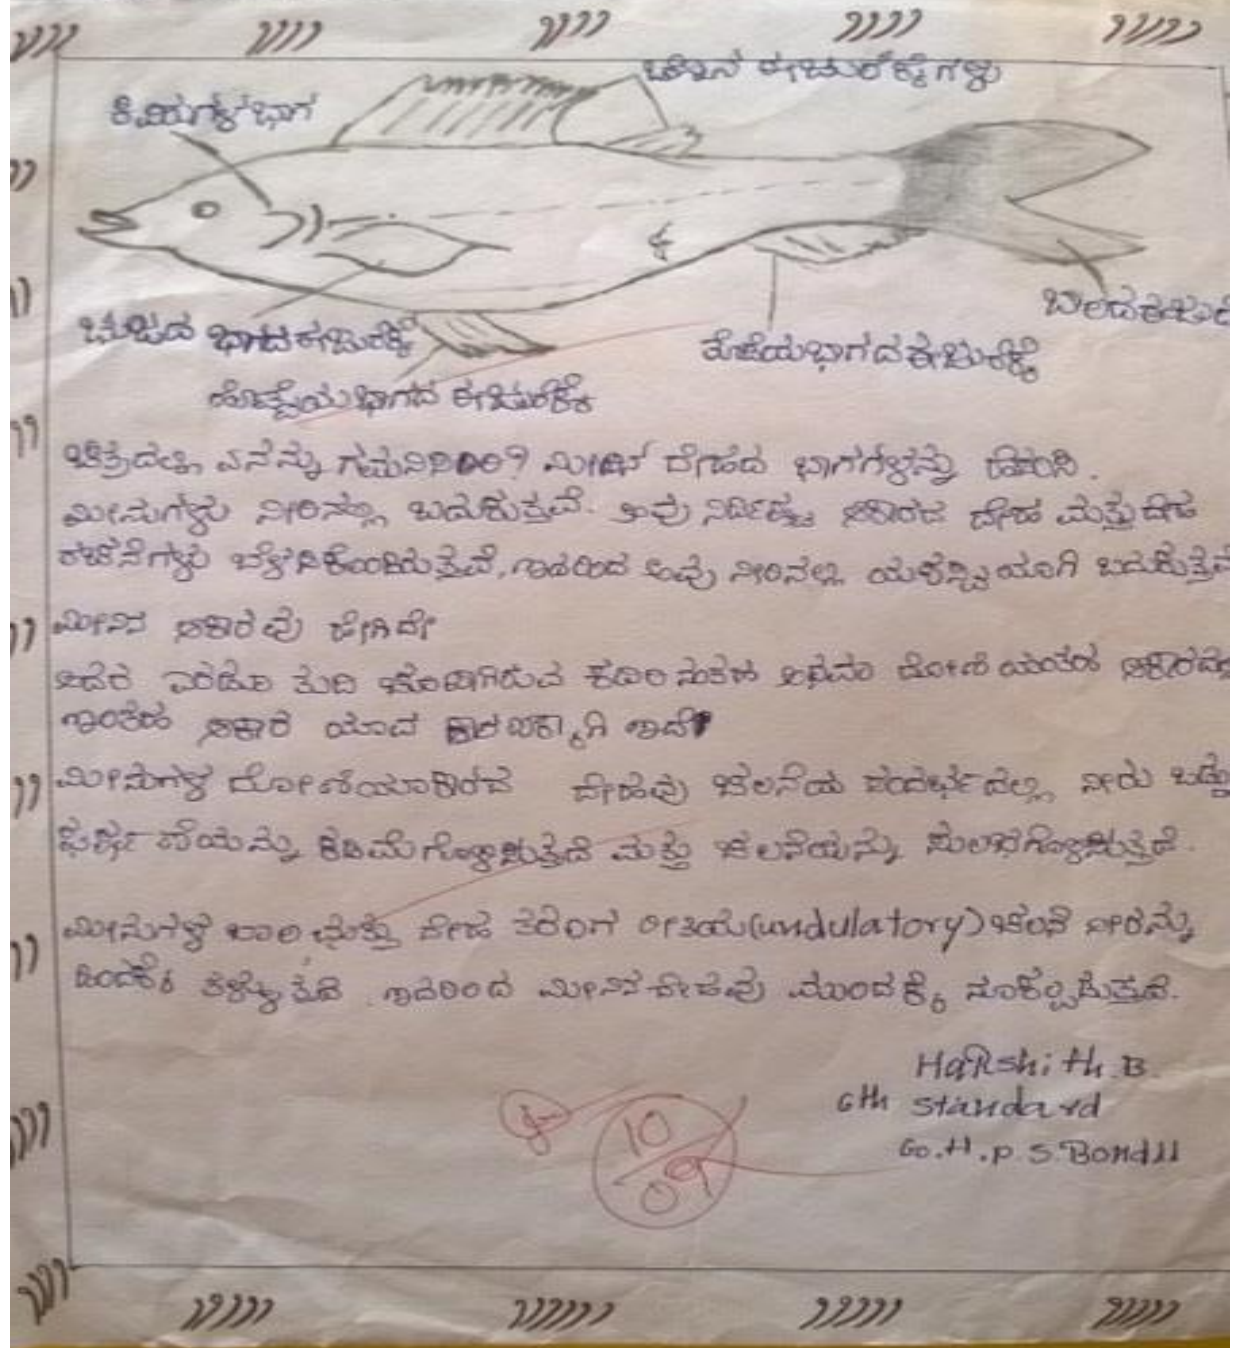 ಬೆನ್ನಿನ ಈಜುರೆಕ್ಕೆಗಳು
ಕಿವಿರುಗಳ ಭಾಗ
ಬಾಲದ ಈಜುರೆ
ಭುಜದ ಭಾಗದ ಈಜುರೆಕ್ಕೆ
ತೊಡೆಯ ಭಾಗದ ಈಜುರೆಕ್ಕೆ
ಹೊಟ್ಟೆಯ ಭಾಗದ ಈಜುರೆಕ್ಕೆ
ಚಿತ್ರದಲ್ಲಿ ಏನನ್ನು ಗಮನಿಸಿದಿರಿ? ಮೀನಿನ ದೇಹದ ಭಾಗಗಳನ್ನು ಹೆಸರಿಸಿ.
ಮೀನುಗಳು ನೀರಿನಲ್ಲಿ ಬದುಕುತ್ತವೆ. ಅವು ನಿರ್ದಿಷ್ಟ ಆಕಾರದ ದೇಹ ಮತ್ತು ದೇಹ
ರಚನೆಗಳು ಬೆಳೆಸಿಕೊಂಡಿರುತ್ತವೆ, ಇದರಿಂದ ಅವು ನೀರಿನಲ್ಲಿ ಯಶಸ್ವಿಯಾಗಿ ಬದುಕುತ್ತವೆ
ಮೀನಿನ ಆಕಾರವು ಹೇಗಿದೆ
ಅದರ ಎರಡೂ ತುದಿ ಚೂಪಾಗಿರುವ ಕದಿರಿನಂತಹ ಅಥವಾ ದೋಣಿಯಂತಹ ಆಕಾರವು
ಇಂತಹ ಆಕಾರ ಯಾವ ಕಾರಣಕ್ಕಾಗಿ ಇದೆ
ಮೀನುಗಳ ದೋಣಿಯಾಕಾರದ ದೇಹವು ಚಲನೆಯ ಸಂದರ್ಭದಲ್ಲಿ ನೀರು ಒಡ್ಡು
ಘರ್ಷಣೆಯನ್ನು ಕಡಿಮೆಗೊಳ್ಳಿಸುತ್ತದೆ ಮತ್ತು ಚಲನೆಯನ್ನು ಸುಲಭಗೊಳ್ಳಿಸುತ್ತದೆ.
ಮೀನುಗಳ ಬಾಲ ಮತ್ತು ದೇಹ ತರಂಗ ರೀತಿಯ (undulatory) ಚಲನೆ ನೀರನ್ನು
ಹಿಂದಕ್ಕೆ ತಳ್ಳುತ್ತದೆ. ಇದರಿಂದ ಮೀನಿನ ದೇಹವು ಮುಂದಕ್ಕೆ ನೂಕಲ್ಪಡುತ್ತದೆ.
HaRshith.B
6th standard
Go.H.p.S.Bondll
10
09